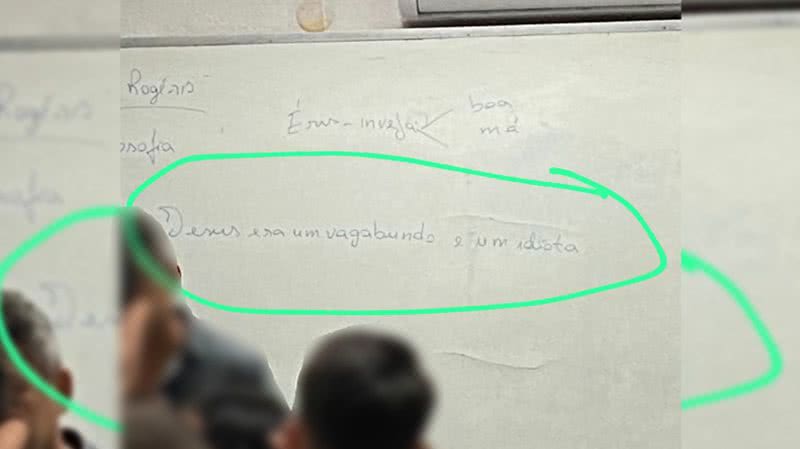 Rogério
osofia
Éris - inveja
boa
má
Jesus era um vagabundo e um idiota